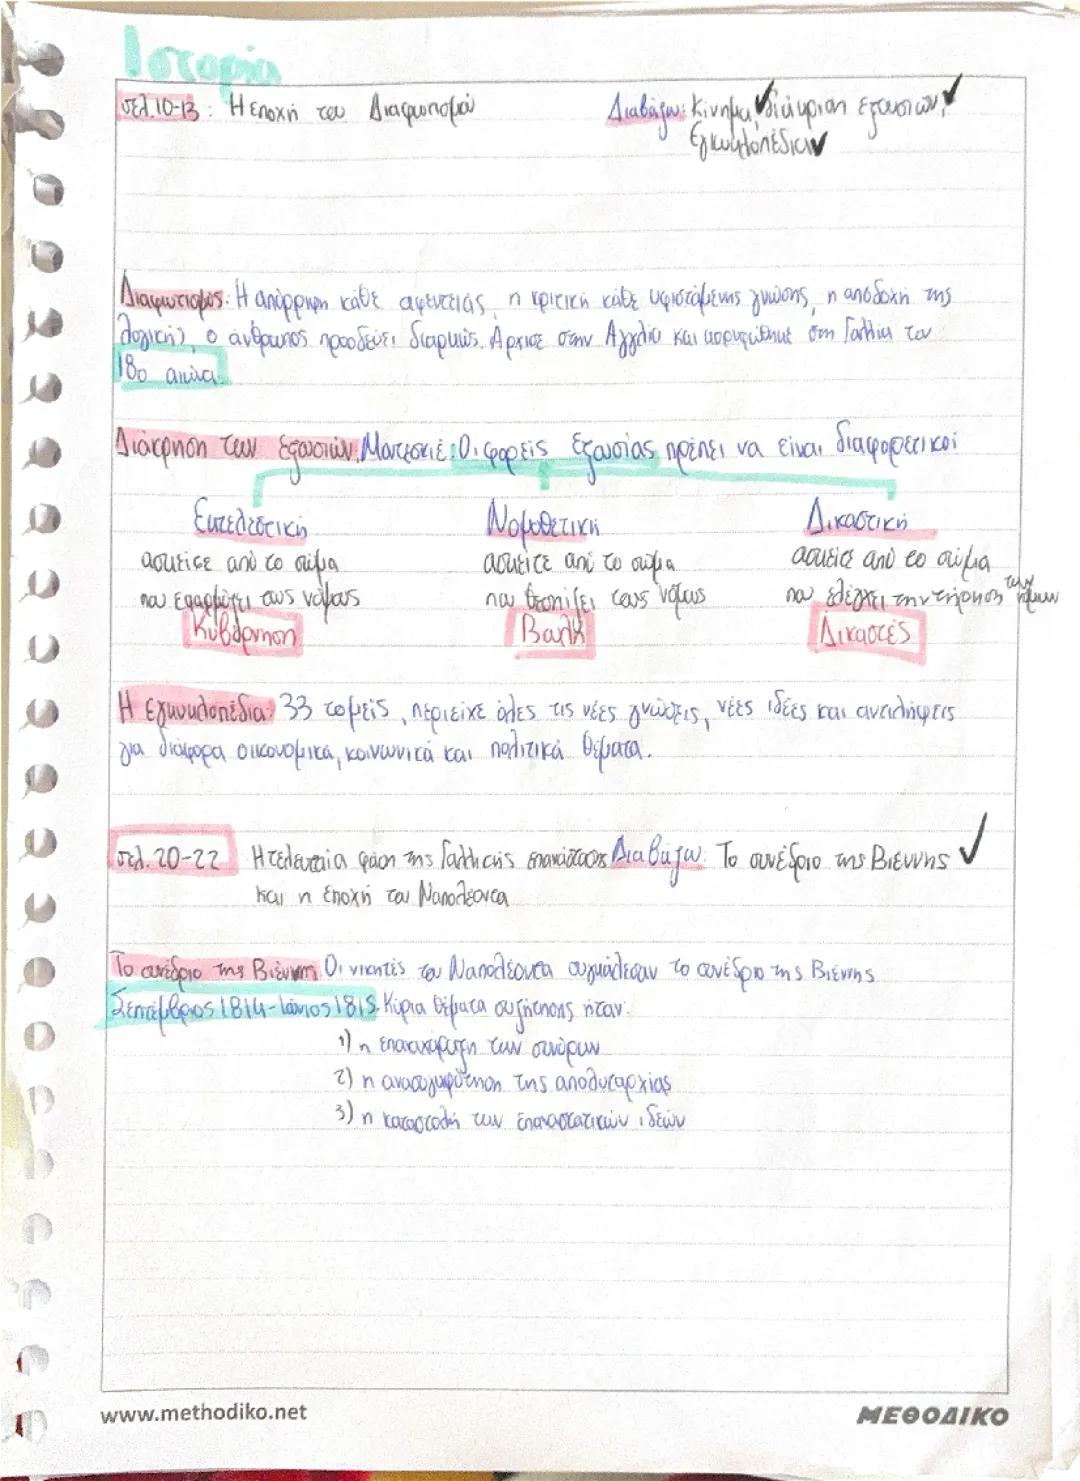 Ιστορία
σελ.10-13: Η εποχή του Διαφωτισμού Διαβάζω: Κίνημα, διάκριση εξουσιών,
Εγκυκλοπέδια
Διαφωτισμός: Η απόρριψη κάθε αυθεντείας, η κριτική κάθε υφιστάμενης γνώσης, η αποδοχή της
λογικής, ο άνθρωπος προοδεύει διαρκώς. Άρχισε στην Αγγλία και κορυφώθηκε στη Γαλλία τον
18ο αιώνα.
Διάκρηση των εξουσιών: Μοντεσκιέ: Οι φορείς εξουσίας πρέπει να είναι διαφορετικοί
Εκτελεστική Νομοθετική Δικαστική
ασκείτε από το σώμα ασκείτε από το σώμα ασκείτε από το σώμα
που εφαρμόζει τους νόμους που θεσπίζει τους νόμους που ελέγχει την τήρηση των νόμων
Κυβέρνηση Βουλή Δικαστές
Η εγκυκλοπέδια: 33 τομείς, περιείχε όλες τις νέες γνώσεις, νέες ιδέες και αντιλήψεις
για διάφορα οικονομικά, κοινωνικά και πολιτικά θέματα.
σελ. 20-22 Η τελευταία φάση της Γαλλικής επανάστασης Διαβάζω: Το συνέδριο της Βιέννης
και η εποχή του Ναπολέοντα
Το συνέδριο της Βιέννης: Οι νικητές του Ναπολέοντα συγκάλεσαν το συνέδριο της Βιέννης
Σεπτέμβριος 1814-Ιούνιος 1815. Κύρια θέματα συζήτησης ήταν:
1) η επαναχάραξη των συνόρων
2) η ανασυγκρότηση της απολυταρχίας
3) η καταστολή των επαναστατικών ιδεών
www.methodiko.net ΜΕΘΟΔΙΚΟ